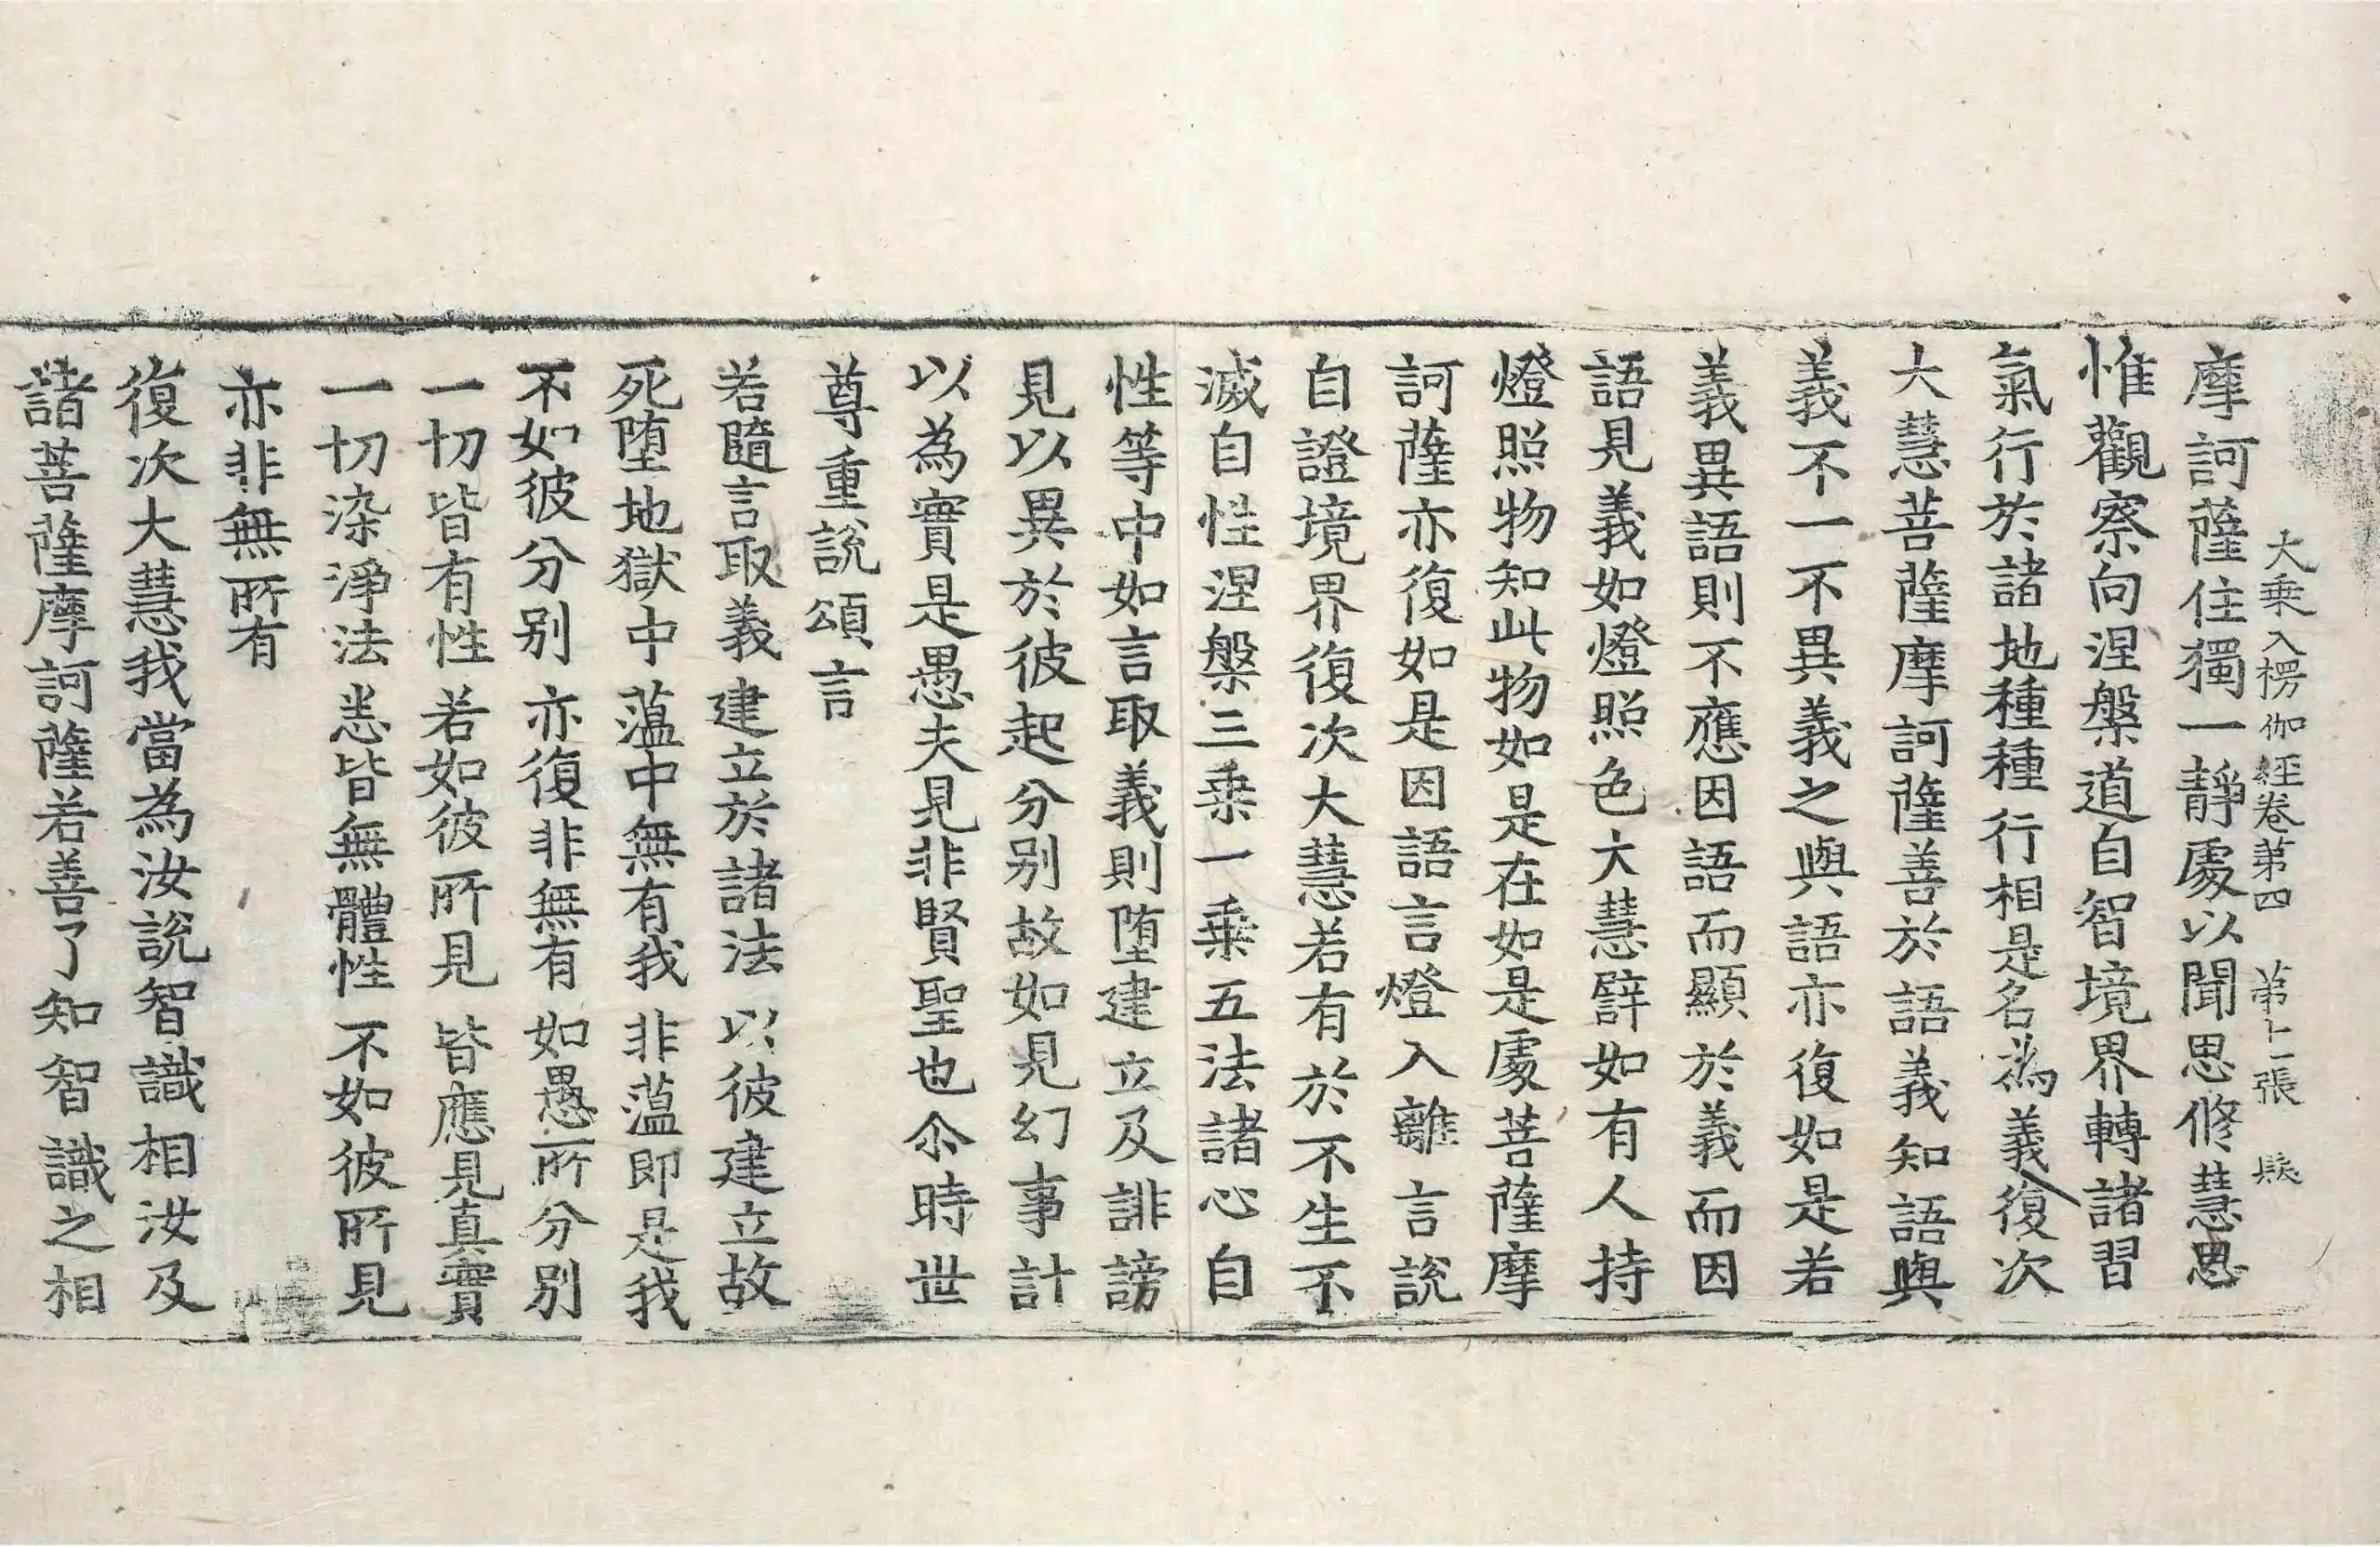 大乗入楞伽經卷第四　第十一張　髮
摩訶薩住獨一靜處以聞思修慧思
惟觀察向涅槃道自智境界轉諸習
氣行於諸地種種行相是名為義復次
大慧菩薩摩訶薩善於語義知語與
義不一不異義之與語亦復如是若
義異語則不應因語而顯於義而因
語見義如燈照色大慧譬如有人持
燈照物知此物如是在如是處菩薩摩
訶薩亦復如是因語言燈入離言說
自證境界復次大慧若有於不生不
滅自性涅槃三乗一乗五法諸心自
性等中如言取義則堕建立及誹謗
見以異於彼起分别故如見幻事計
以為實是愚夫見非賢聖也尒時世
尊重說頌言
若隨言取義　建立於諸法　以彼建立故
死堕地獄中　蕰中無有我　非蕰即是我
不如彼分别　亦復非無有　如愚所分别
一切皆有性　若如彼所見　皆應見真實
一切染淨法　悉皆無體性　不如彼所見
亦非無所有
復次大慧我當為汝說智識相汝及
諸菩薩摩訶薩若善了知智識之相